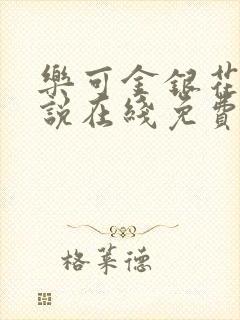 樂可金銀花
說在綫免費
格萊德